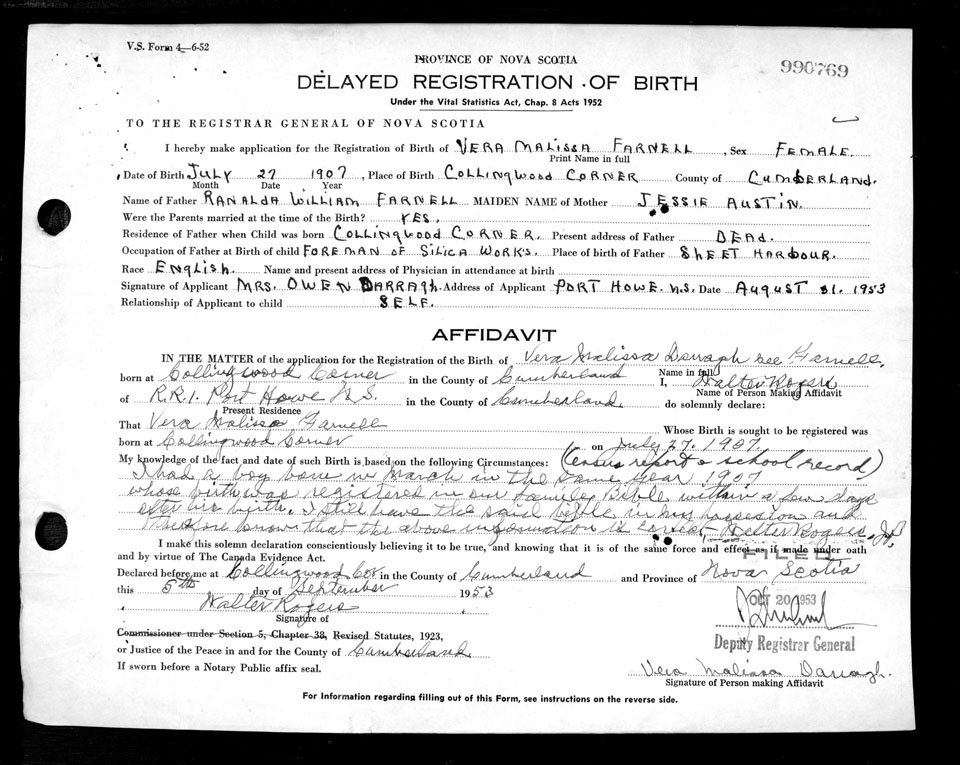 V.S. Form 4-6-52
PROVINCE OF NOVA SCOTIA
990769
DELAYED REGISTRATION OF BIRTH
Under the Vital Statistics Act, Chap. 8 Acts 1952
TO THE REGISTRAR GENERAL OF NOVA SCOTIA
I hereby make application for the Registration of Birth of VERA MALISSA FARNELL, Sex FEMALE.
Print Name in full
Date of Birth JULY 27 1907, Place of Birth COLLINGWOOD CORNER County of CUMBERLAND.
Month Date Year
Name of Father RANALDA WILLIAM FARNELL MAIDEN NAME of Mother JESSIE AUSTIN.
Were the Parents married at the time of the Birth? YES.
Residence of Father when Child was born COLLINGWOOD CORNER. Present address of Father DEAD.
Occupation of Father at Birth of child FOREMAN OF SILICA WORKS. Place of birth of Father SHEET HARBOUR.
Race ENGLISH. Name and present address of Physician in attendance at birth
Signature of Applicant MRS. OWEN DARRAGH. Address of Applicant PORT HOWE. N.S. Date AUGUST 31. 1953
Relationship of Applicant to child SELF.
AFFIDAVIT
IN THE MATTER of the application for the Registration of the Birth of Vera Malissa Darragh nee Farnell,
Name in full
born at Collingwood Corner in the County of Cumberland I, Walter Rogers
Name of Person Making Affidavit
of R.R.1. Port Howe N.S. in the County of Cumberland. do solemnly declare:
Present Residence
That Vera Malissa Farnell Whose Birth is sought to be registered was
born at Collingwood Corner on July 27. 1907.
My knowledge of the fact and date of such Birth is based on the following Circumstances: (Census report & school record)
I had a boy born in March in the same year 1907
whose birth was registered in our family Bible within a few days
after his birth. I still have the said bible in my possesion and
therefore know that the above information is correct. Walter Rogers, J.P.
I make this solemn declaration conscientiously believing it to be true, and knowing that it is of the same force and effect as if made under oath
and by virtue of The Canada Evidence Act.
FILED
Declared before me at Collingwood Cor. in the County of Cumberland and Province of Nova Scotia
this 5th day of September 1953
OCT 20 1953
Walter Rogers
Signature of
Commissioner under Section 5, Chapter 38, Revised Statutes, 1923,
Deputy Registrar General
or Justice of the Peace in and for the County of Cumberland
If sworn before a Notary Public affix seal.
Vera Malissa Darragh.
Signature of Person making Affidavit
For Information regarding filling out of this Form, see instructions on the reverse side.